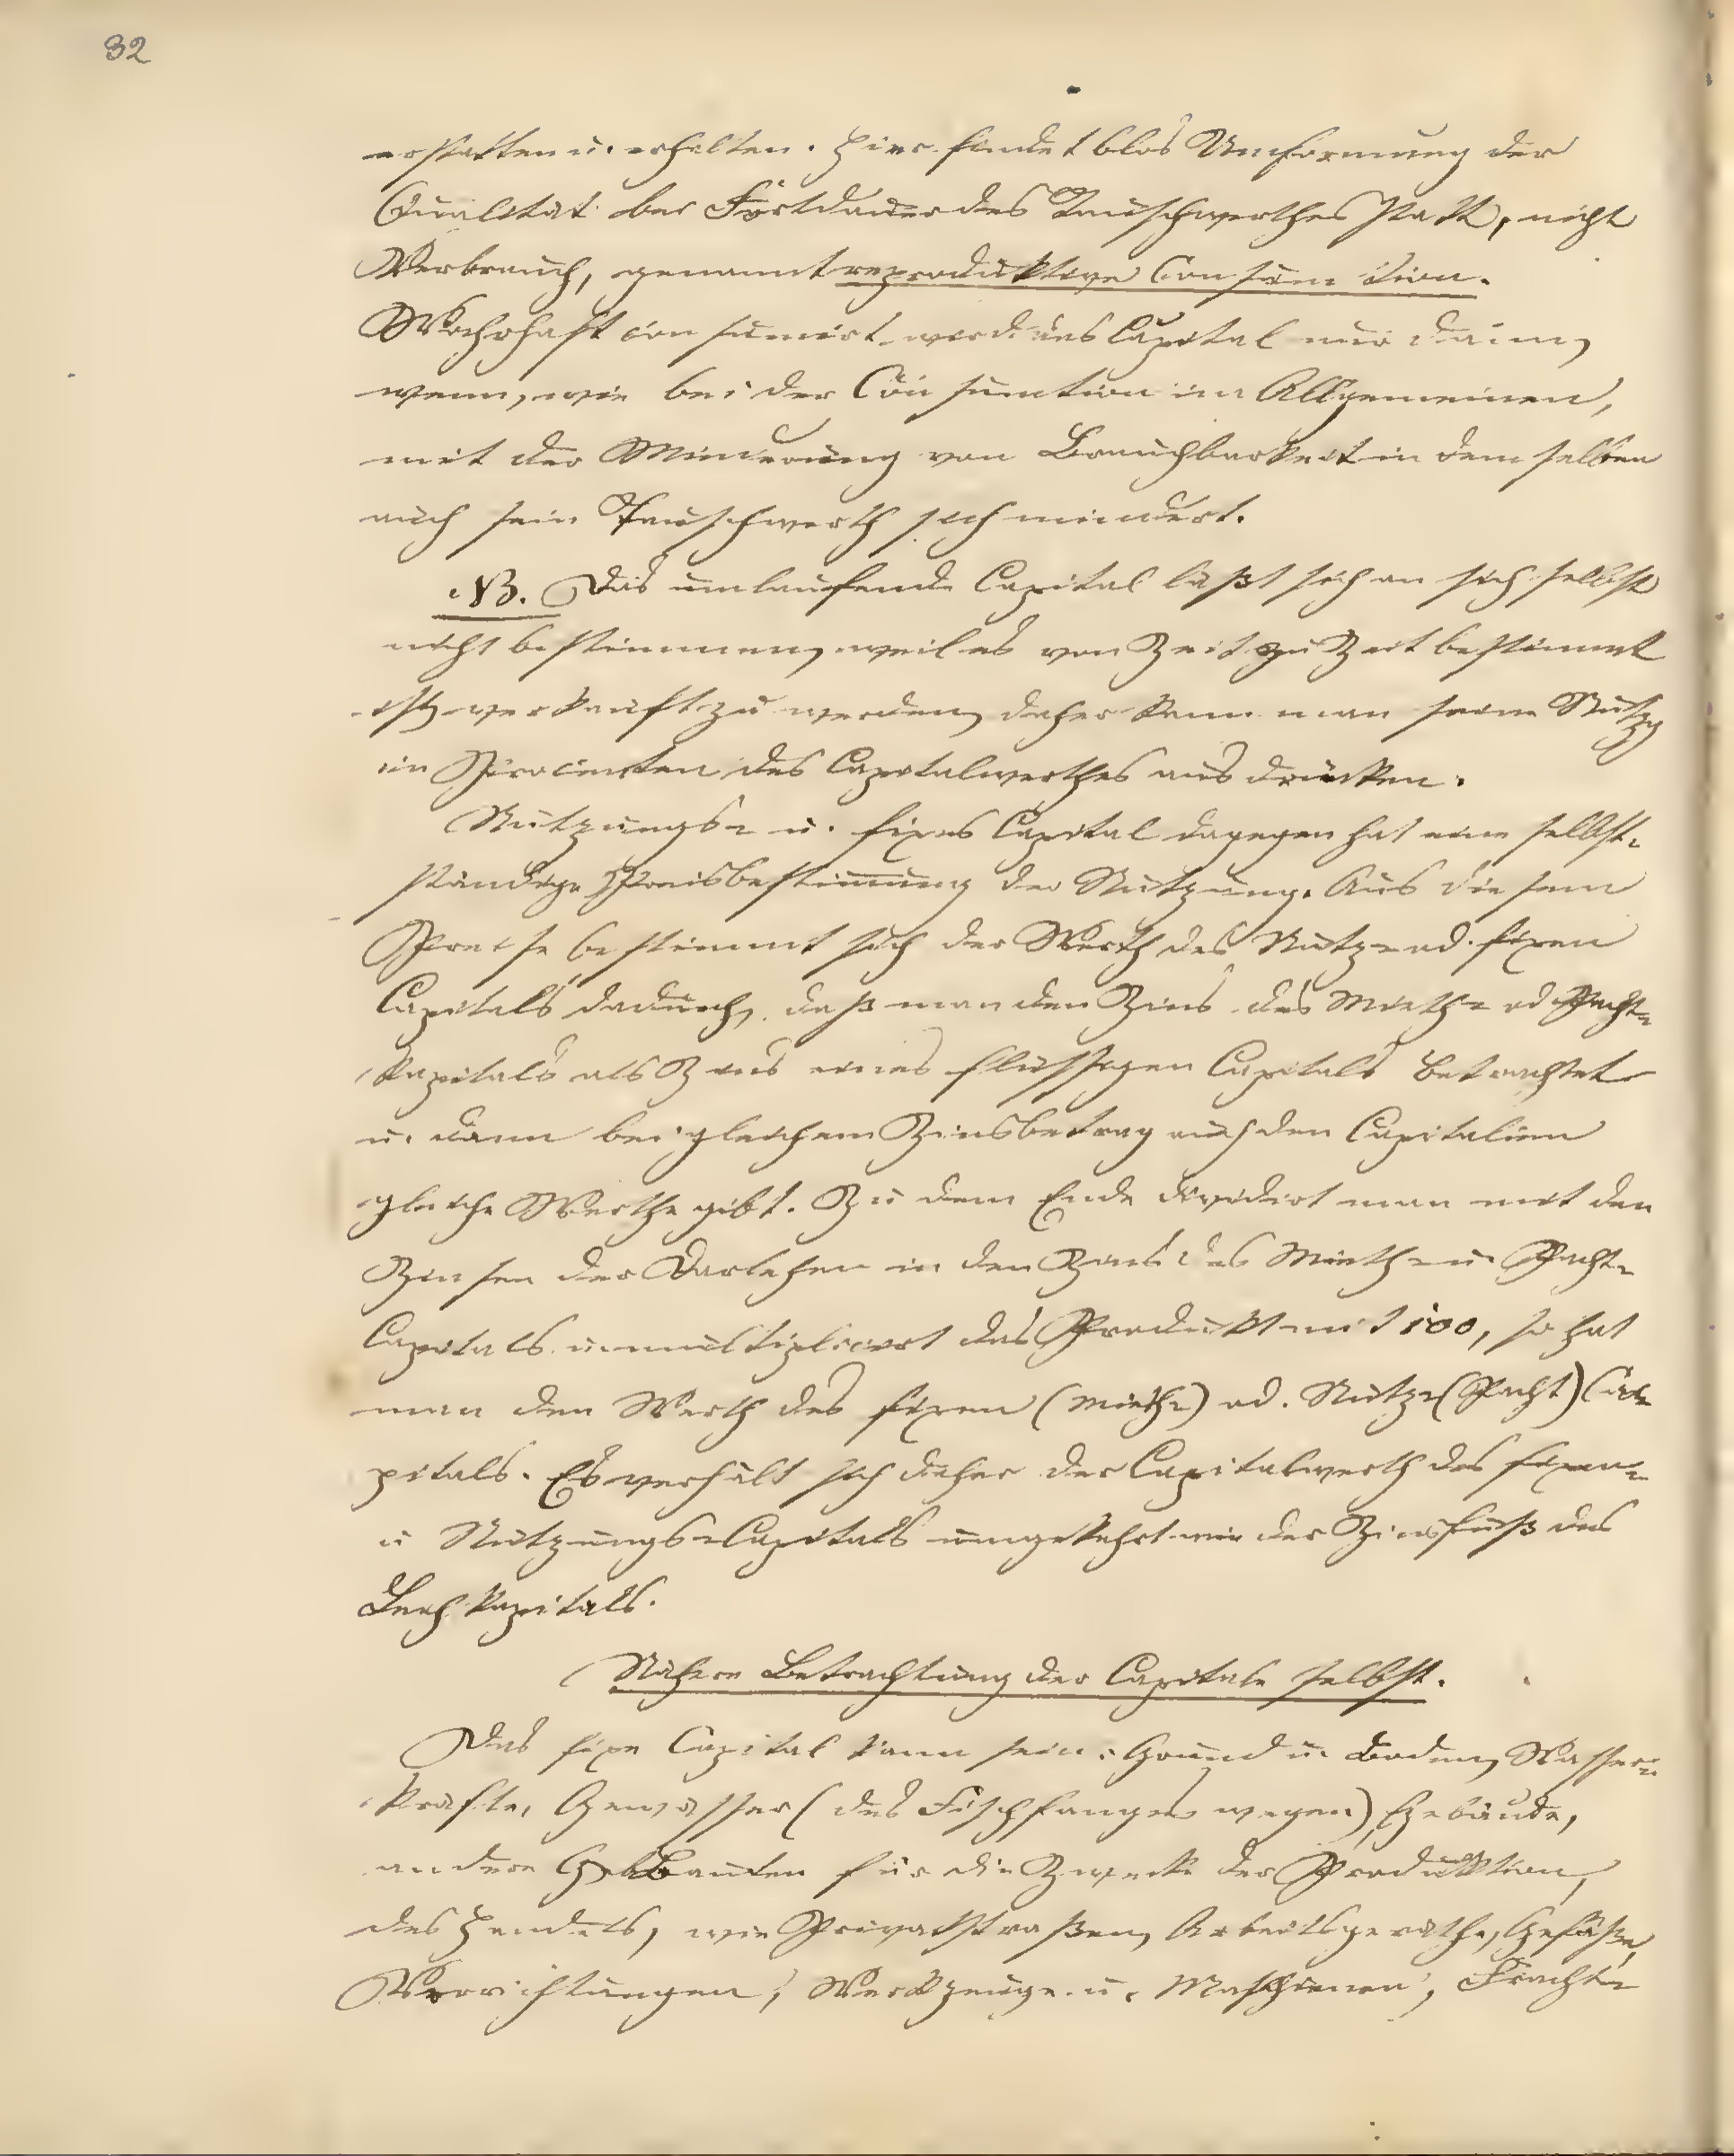 32
erstatten u. erhalten. Hier findet blos Umformung der
Qualität bei Fortdauer des Tauschwerthes statt, nicht
Verbrauch, genannt reproduktive Consumtion.
Wahrhaft consumirt wird das Capital nur dann,
wenn, wie bei der Consumtion im Allgemeinen,
mit der Minderung von Brauchbarkeit in demselben
auch sein Tauschwerth sich mindert.
NB. Das umlaufende Capital läßt sich an sich selbst
nicht bestimmen, weil es von Zeit zu Zeit bestimmt
ist, verkauft zu werden, daher kann man seine Nutzg
in Procenten des Capitalwerthes ausdrücken.
Nutzungs= u. fixes Capital dagegen hat eine selbst=
ständige Preisbestimmung der Nutzung. Aus diesem
Preise bestimmt sich der Werth des Nutz= od. fixen
Capitals dadurch, daß man den Zins des Mieth= od Pacht=
kapitals als Zins eines flüssigen Capitals betrachtet
u. dann bei gleichem Zinsbetrag auch den Capitalien
gleiche Werthe gibt. Zu dem Ende dividirt man mit den
Zinsen der Darlehen in den Zins des Mieth= u. Pacht=
Capitals u. multiplicirt das Produkt mit 100, so hat
man den Werth des fixen (Mieth=) od. Nutz= (Pacht) Ca=
pitals. Es verhält sich daher der Capitalwerth des fixen=
u Nutzungs=Capitals umgekehrt wie der Zinsfuß des
Leihkapitals.
Nähere Betrachtung der Capitale selbst.
Das fixe Capital kann sein: Grund u. Boden, Wasser=
kräfte, Gewässer (des Fischfanges wegen), Gebäude,
andere Bauten für die Zwecke der Produktion,
des Handels, wie Privatstraßen, Arbeitsgeräthe, Gefäße,
Vorrichtungen, Werkzeuge u. Maschinen, Fracht=